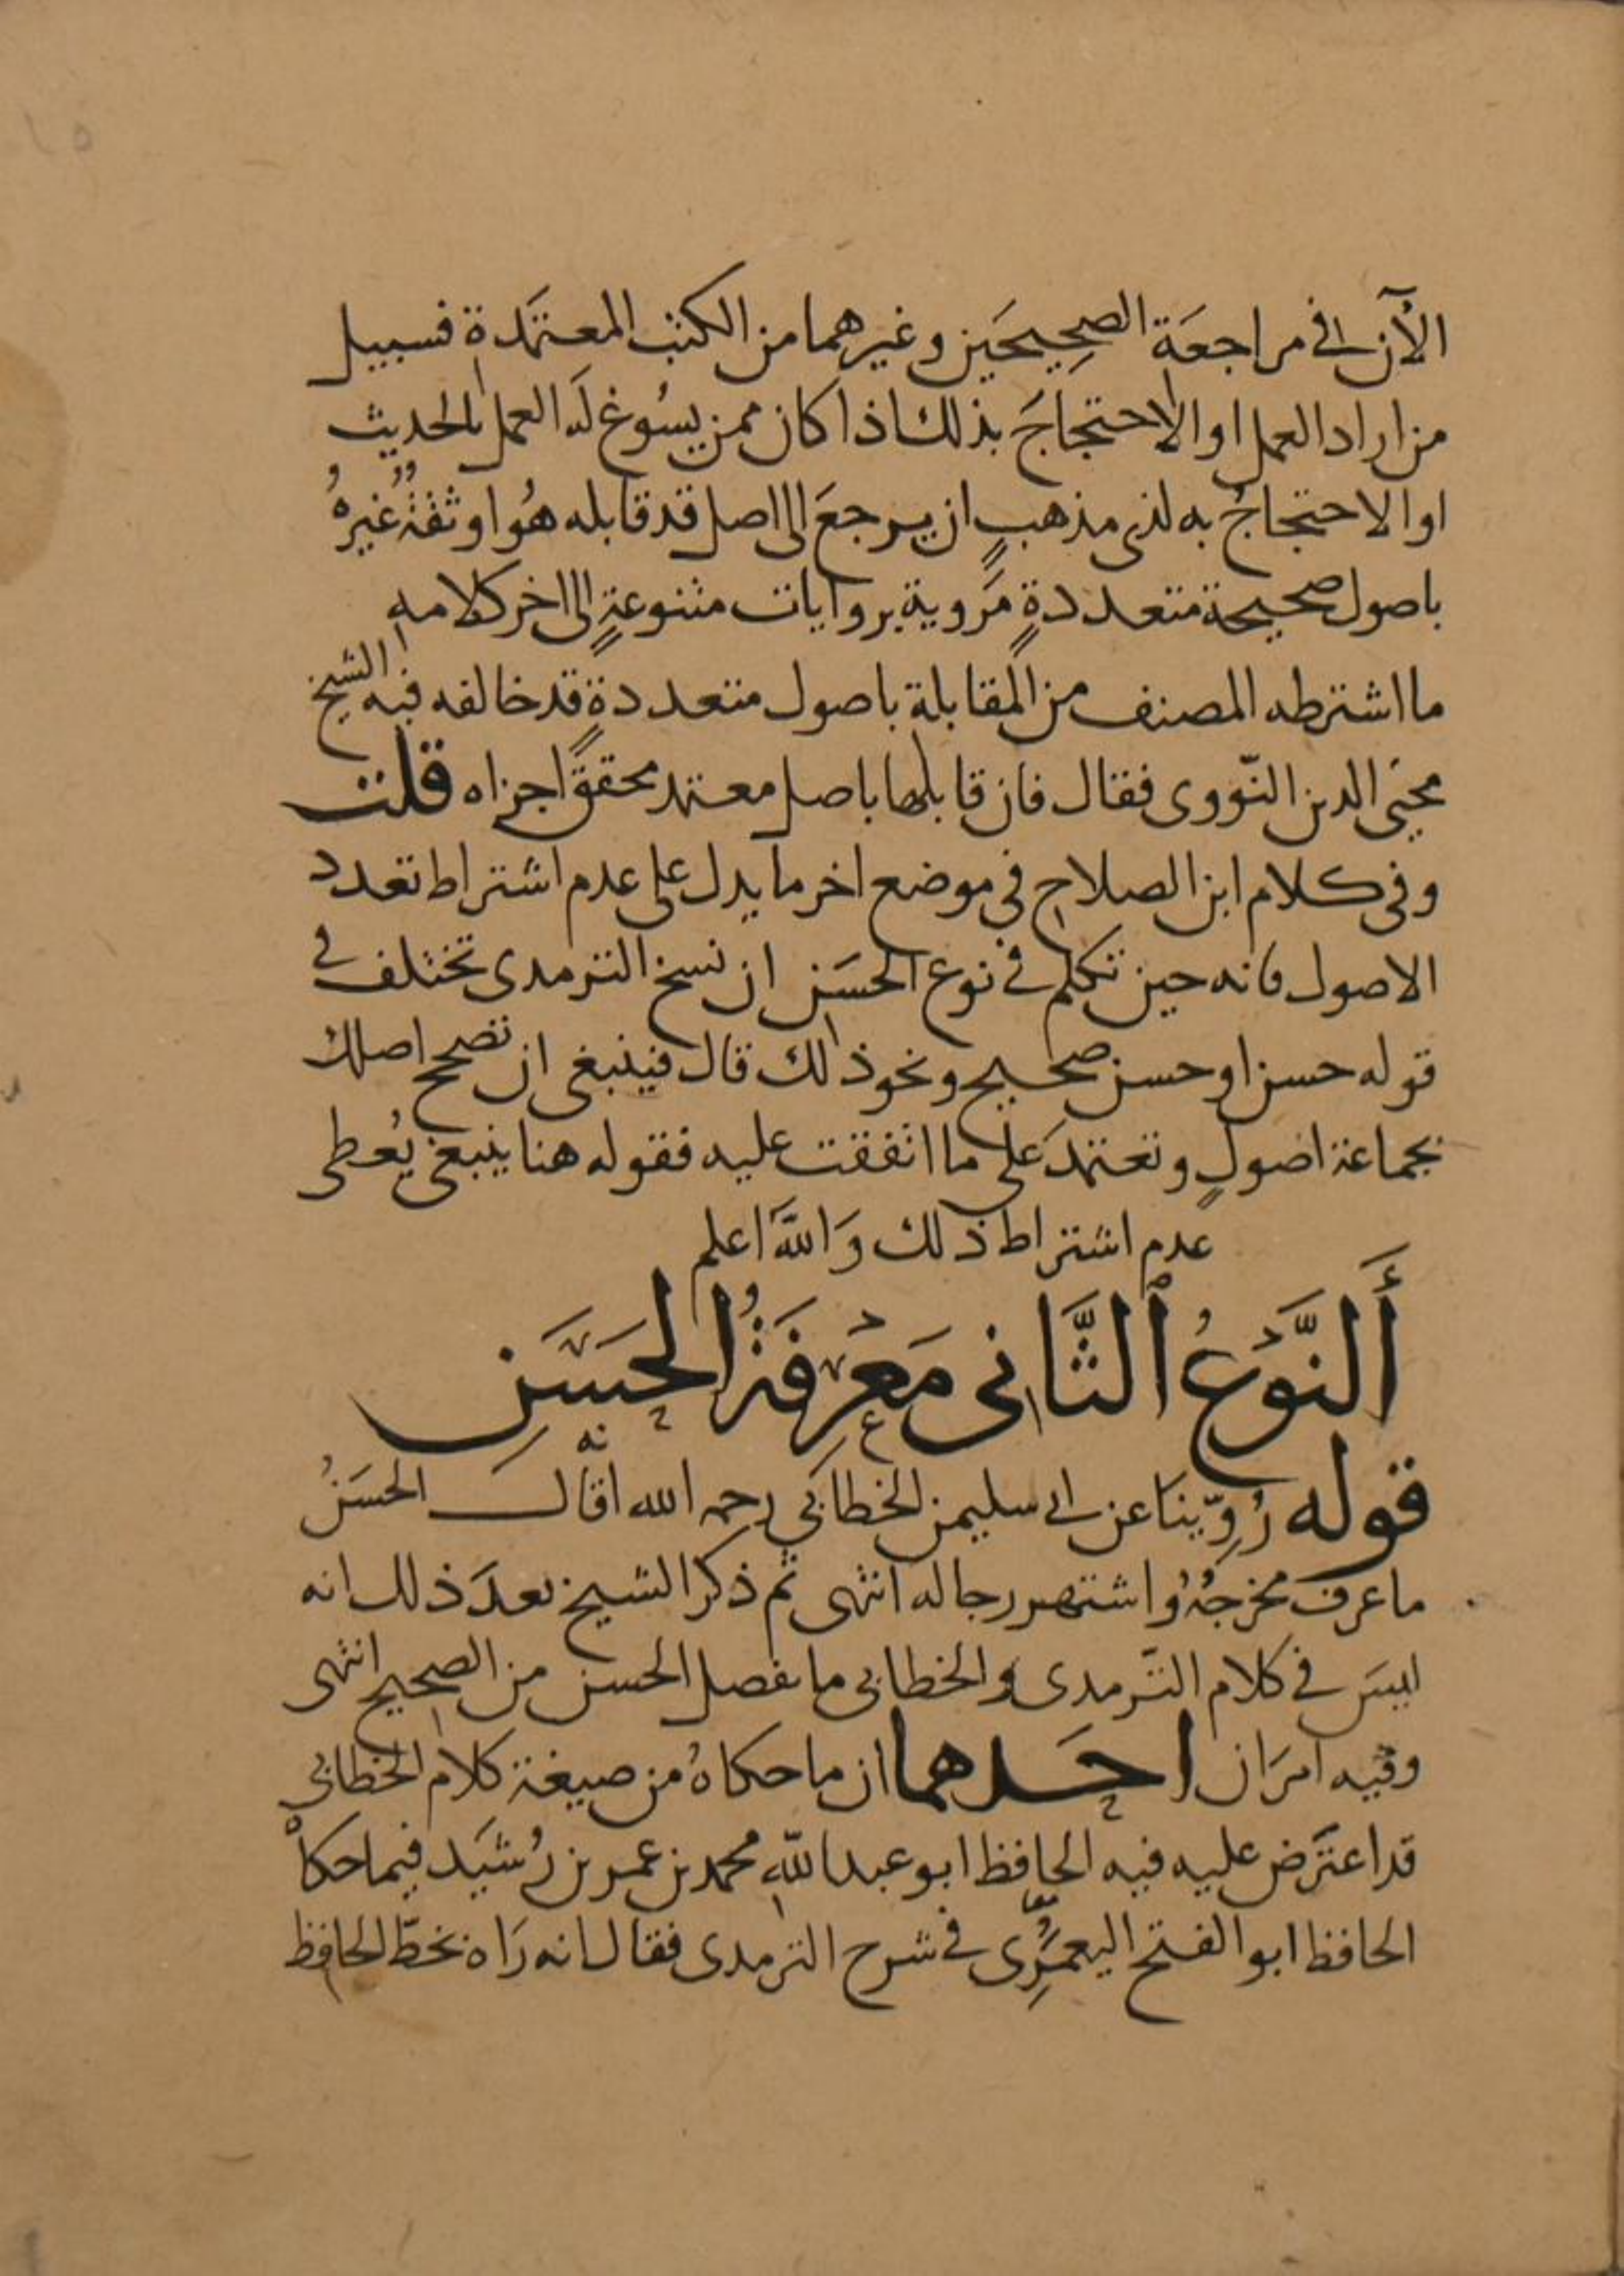 الآن في مراجعَة الصحِيحَين وغيرهما من الكتب المعتمَدة فسبيل
من اراد العمل او الاحتجاجَ بذلك اذا كان ممن يسُوغ لَه العمل بالحديث
او الاحتجاجُ به لذى مذهبٍ ان يرجعَ الى اصل قد قابله هُو او ثقةٌ غيرهُ
باصول صحيحة متعددةٍ مَروية بروايات متنوعةٍ الى اخر كلامه
ما اشترطه المصنف من المقابلة باصول متعددةٍ قد خالفه فيه الشيخ
محيَى الدين النّووى فقال فان قابلها باصل معتمد محقق اجزاه قلت
وفى كلام ابن الصلاح فى موضع اخر ما يدل على عدم اشتراط تعدد
الاصول فانه حين تكلم في نوع الحسَن ان نسخ الترمدى تختلف في
قوله حسن او حسن صحيح ونحو ذلك قال فينبغى ان تصحح اصلك
بجماعة اصولٍ وتعتمدَ على ما اتفقت عليه فقوله هنا ينبغى يُعطى
عدم اشتراط ذلك وَاللهَ اعلم
أَلنَّوْعُ ٱلثَّانى مَعْرِفَةُ الحَسَنِ
قوله رُوِّينَا عن ابى سليمن الخطابي رحمه الله انه قال الحسَنُ
ما عرف مخرجُهُ واشتهر رجاله انتهى ثم ذكر الشيخ بعدَ ذلك انه
ليسَ في كلام التّرمدى والخطابى ما يفصل الحسن من الصحيح انتهى
وفيه امرَان احَدهما ان ما حكاهُ من صيغة كلام الخطابى
قد اعترَض عليه فيه الحافظ ابو عبد اللّه محمد بن عمر بن رُشيَد فيما حكاهُ
الحافظ ابو الفتح اليعمُرِّى في شرح الترمدى فقال انه رَاه بخطّ الحافظ